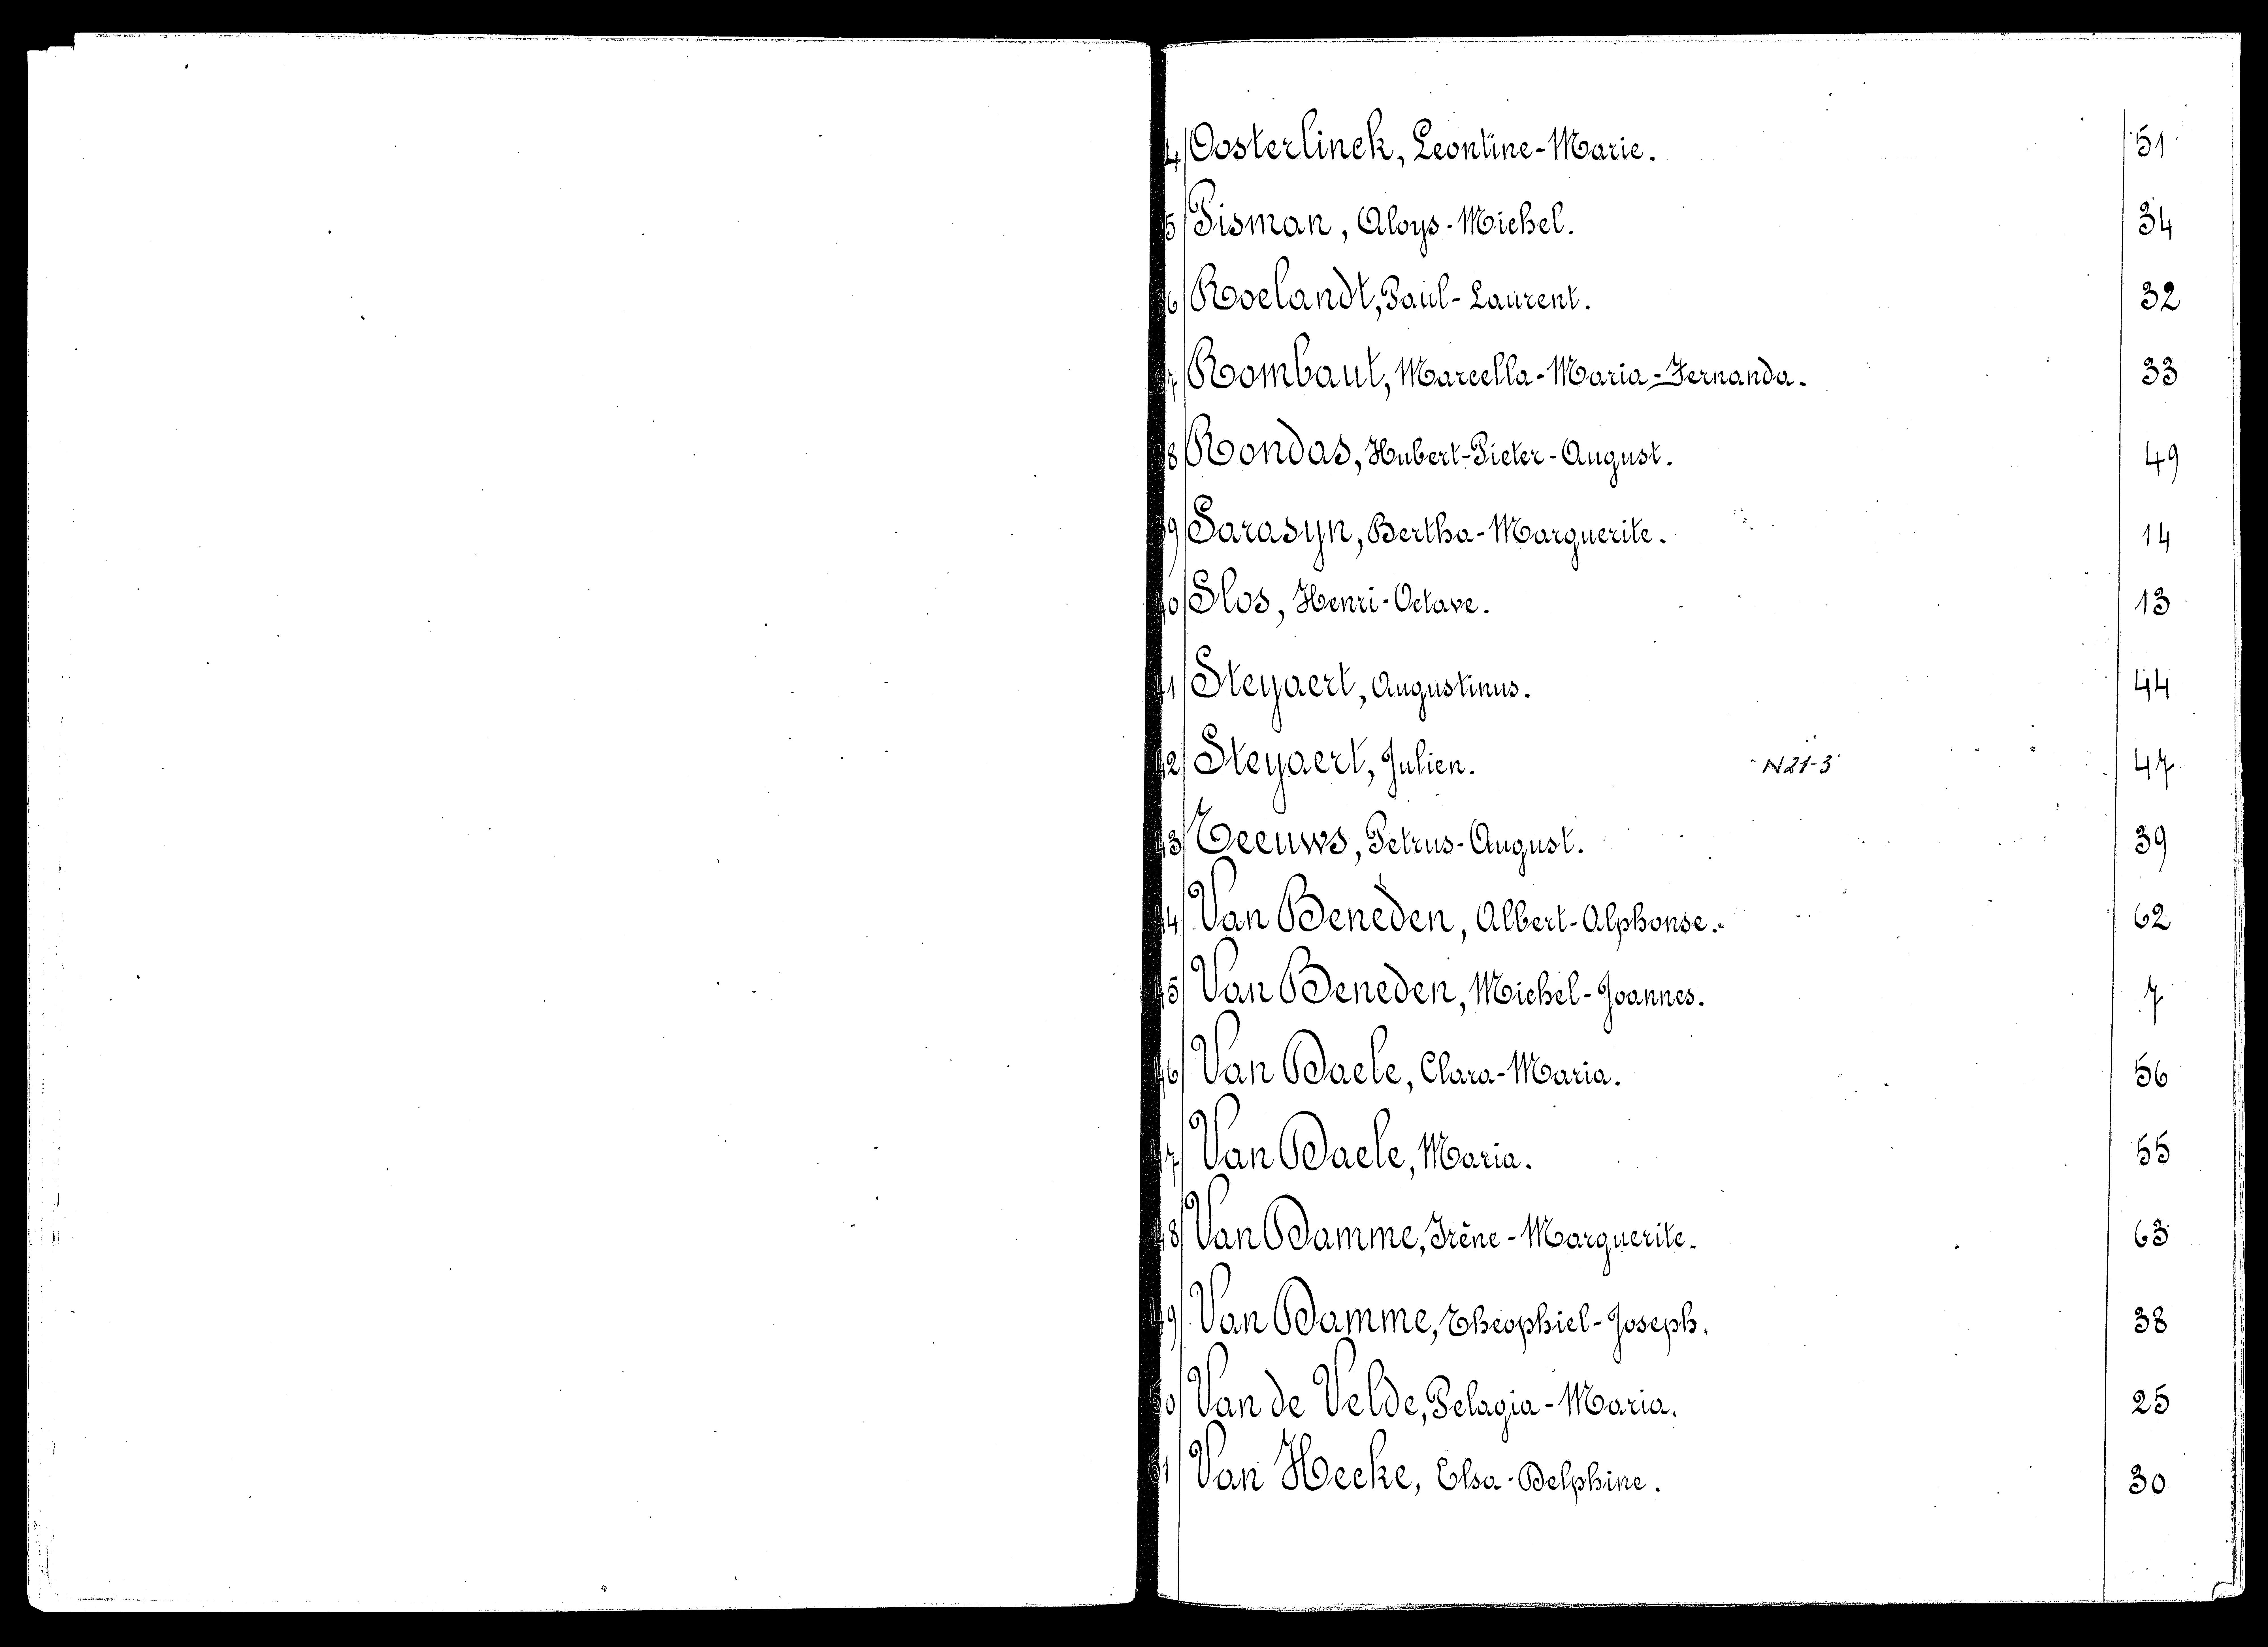 4 Oosterlinck, Leontine-Marie. 51
5 Pisman, Aloys-Michel. 34
36 Roelandt, Paul-Laurent. 32
37 Rombaut, Marcella-Maria-Fernanda. 33
38 Rondas, Hubert-Pieter-August. 49
39 Sarasyn, Bertha-Marguerite. 14
40 Slos, Henri-Octave. 13
41 Steyaert, Augustinus. 44
42 Steyaert, Julien. N21-3 47
43 Teeuws, Petrus-August. 39
44 Van Beneden, Albert-Alphonse. 62
45 Van Beneden, Michel-Joannes. 7
46 Van Daele, Clara-Maria. 56
47 Van Daele, Maria. 55
48 Van Damme, Irène-Marguerite. 63
49 Van Damme, Theophiel-Joseph. 38
50 Van de Velde, Pelagia-Maria. 25
51 Van Hecke, Elsa-Delphine. 30